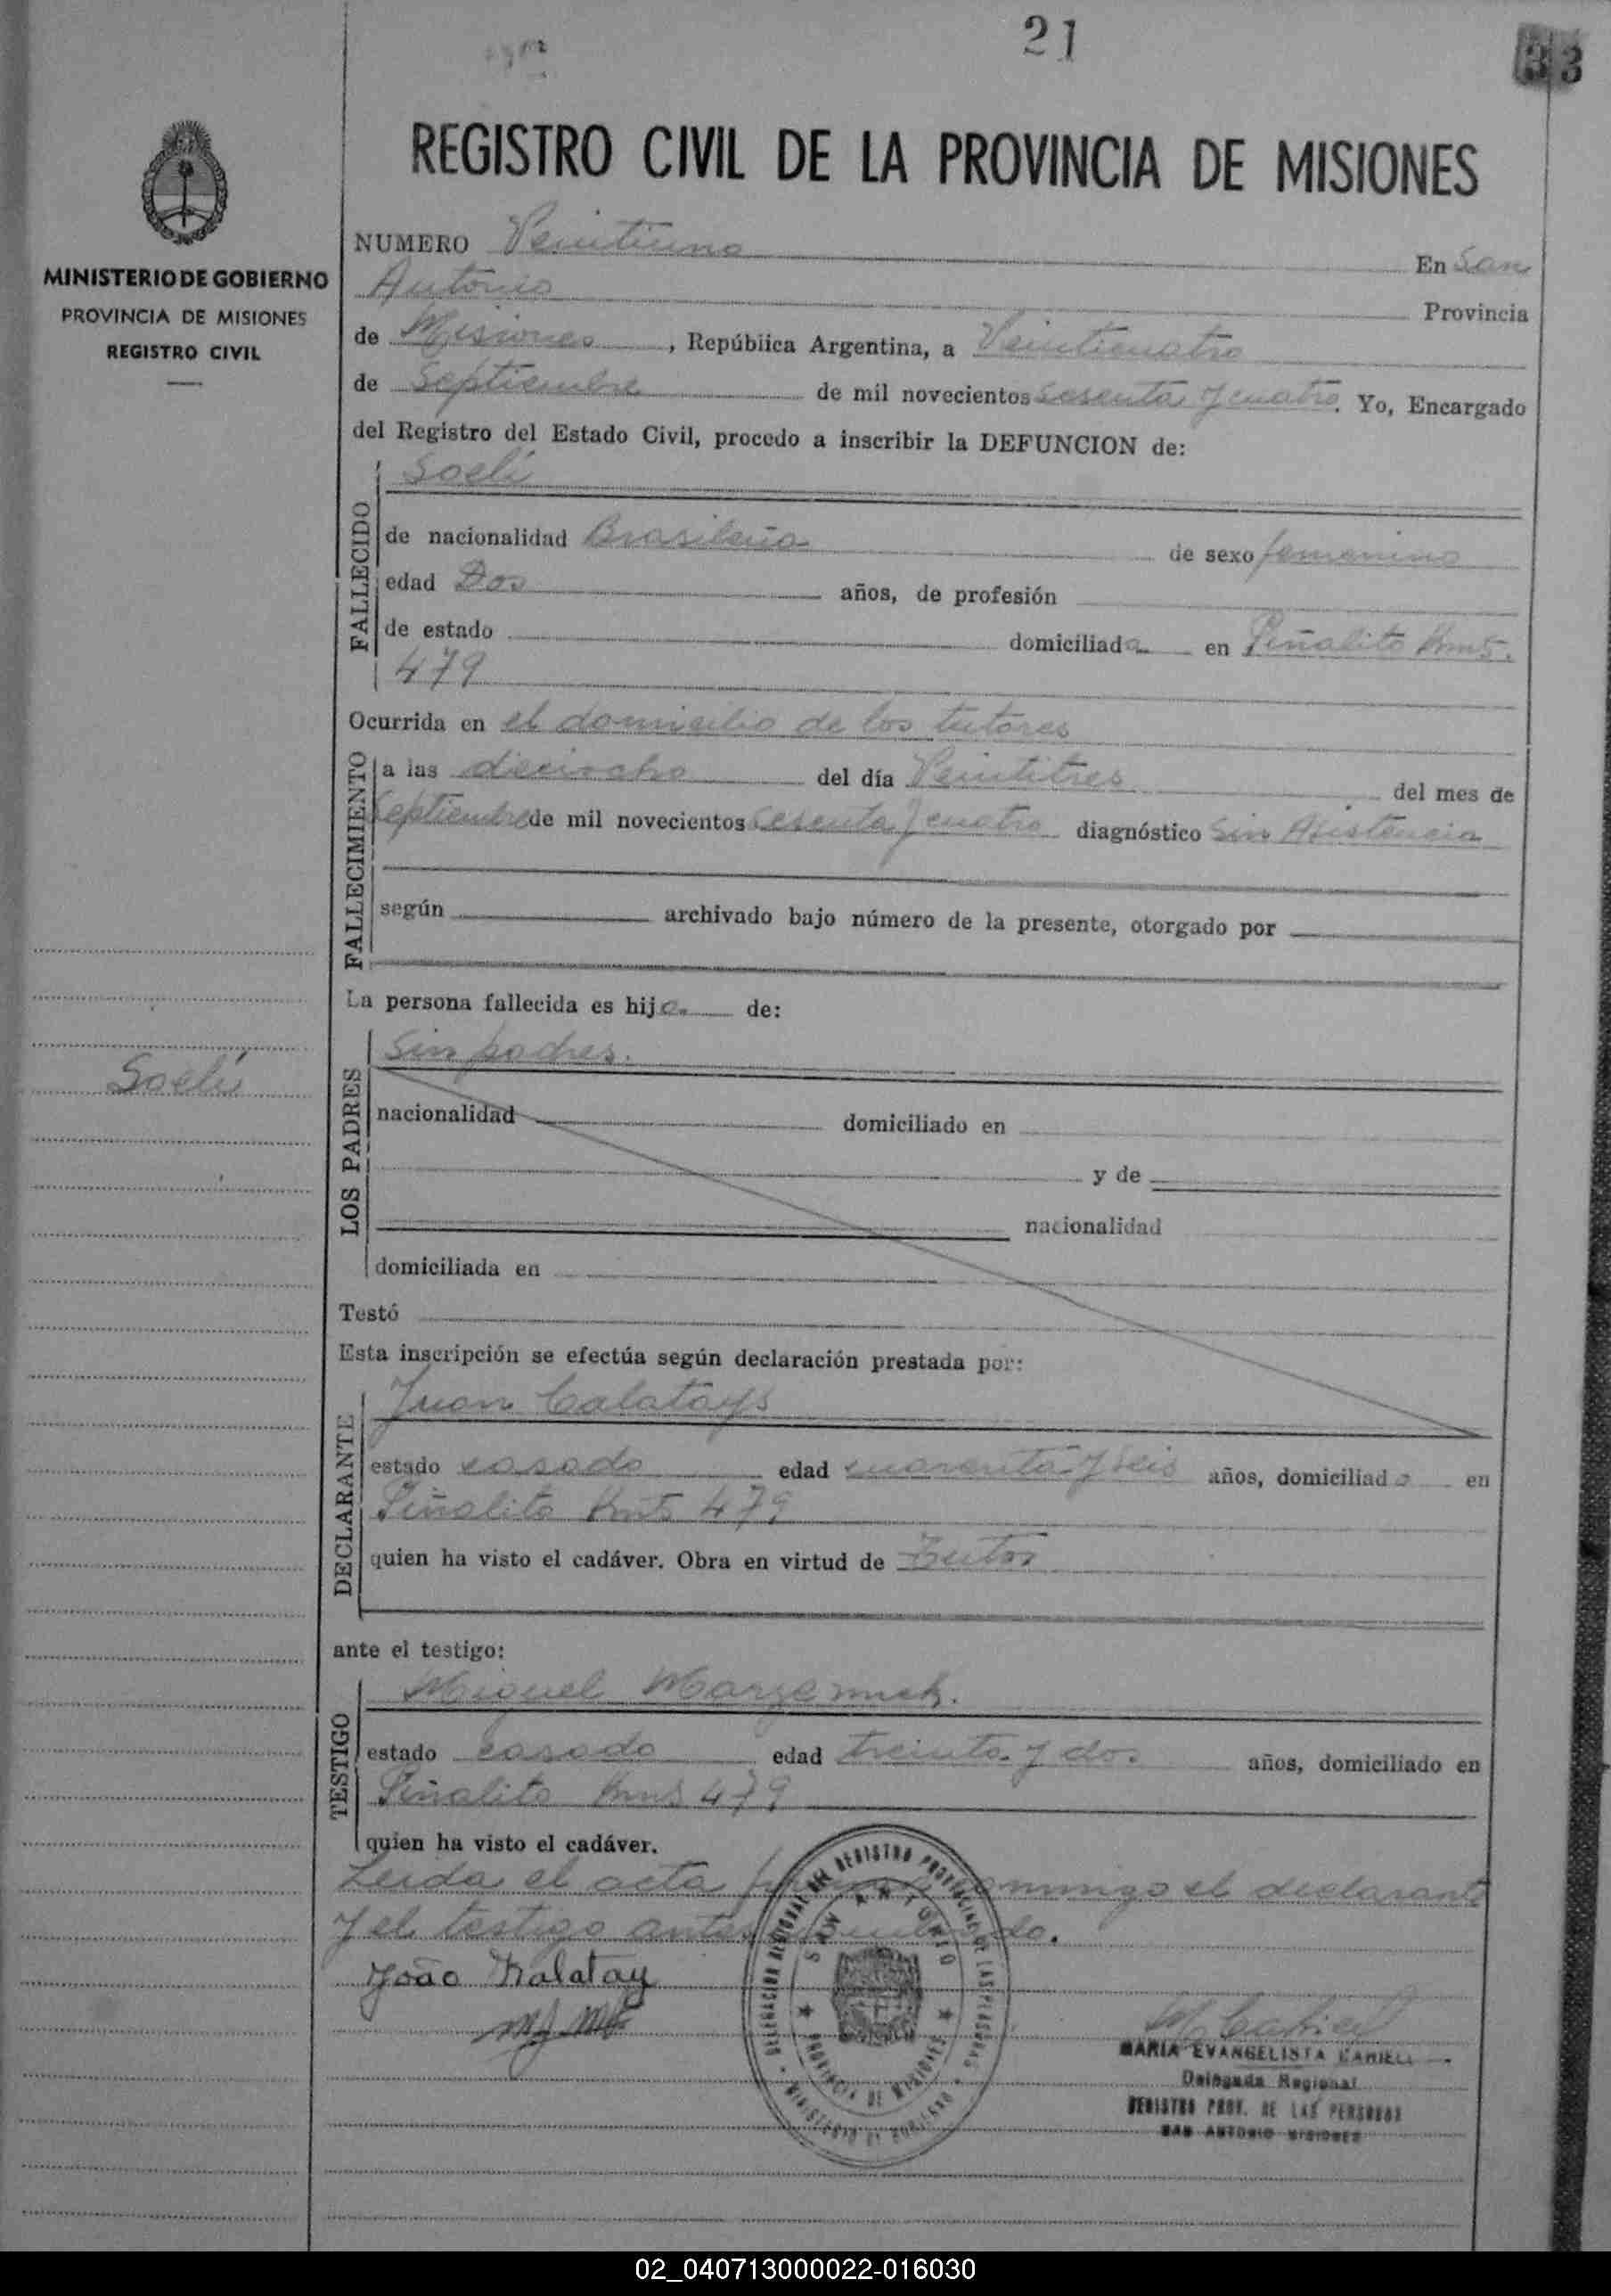 21
33
REGISTRO CIVIL DE LA PROVINCIA DE MISIONES
MINISTERIO DE GOBIERNO
PROVINCIA DE MISIONES
REGISTRO CIVIL
NUMERO Veintiuno En San
Antonio Provincia
de Misiones, República Argentina, a Veinticuatro
de Septiembre de mil novecientos sesenta y cuatro. Yo, Encargado
del Registro del Estado Civil, procedo a inscribir la DEFUNCION de:
FALLECIDO
Soeli
de nacionalidad Brasileña de sexo femenino
edad Dos años, de profesión
de estado domiciliada en Piñalito Kms.
479
Ocurrida en el domicilio de los tutores
FALLECIMIENTO
a las dieciocho del día Veintitres del mes de
Septiembre de mil novecientos sesenta y cuatro diagnóstico Sin Asistencia
según archivado bajo número de la presente, otorgado por
La persona fallecida es hija de:
Soeli
LOS PADRES
Sin padres.
nacionalidad domiciliado en
y de
nacionalidad
domiciliada en
Testó
Esta inscripción se efectúa según declaración prestada por:
DECLARANTE
Juan Calatays
estado casado edad cuarenta y seis años, domiciliado en
Piñalito Kms 479
quien ha visto el cadáver. Obra en virtud de Tutor
ante el testigo:
TESTIGO
Miguel
estado casado edad treinta y dos años, domiciliado en
Piñalito Kms 479
quien ha visto el cadáver.
Leida el acta firman conmigo el declarante
y el testigo antes nombrado.
João Kalatay
DELEGACION REGIONAL DEL REGISTRO PROVINCIAL DE LAS PERSONAS
SAN ANTONIO
PROVINCIA DE MISIONES
MINISTERIO DE GOBIERNO
M Cariell
MARIA EVANGELISTA CARIELL
Delegada Regional
REGISTRO PROV. DE LAS PERSONAS
SAN ANTONIO MISIONES
02_040713000022-016030